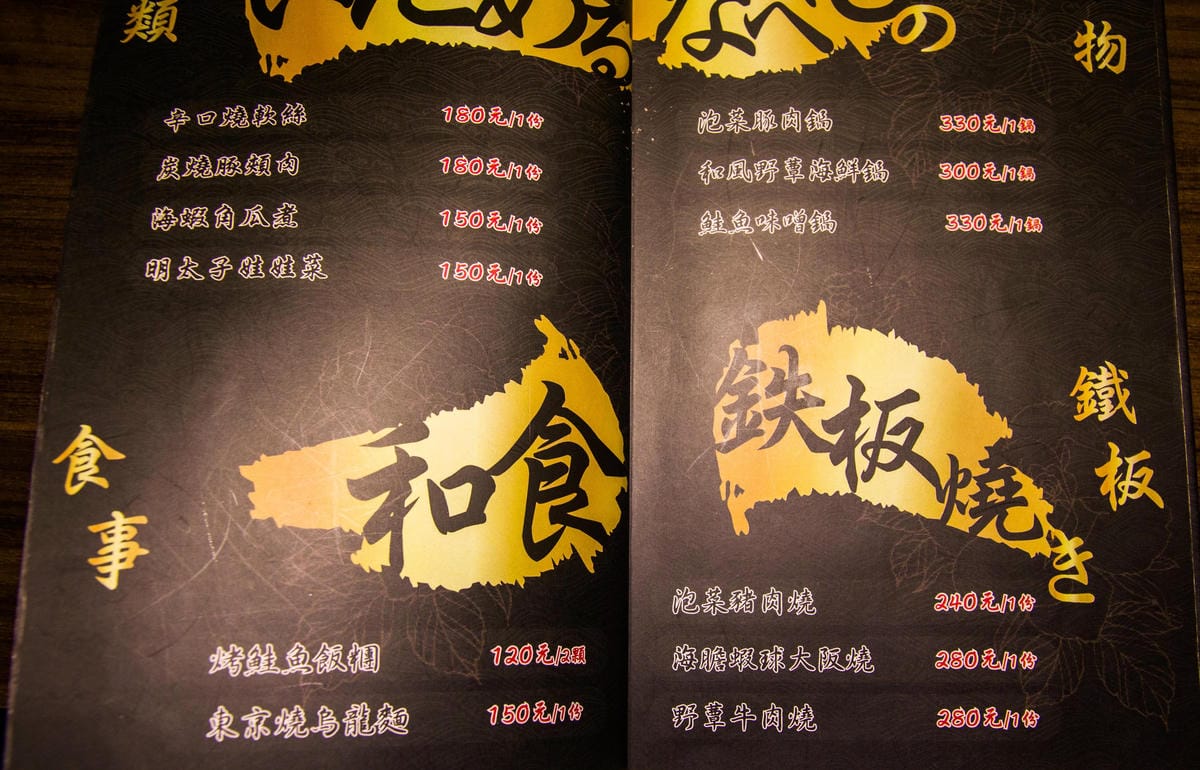 類
いためる
辛口燒軟絲 180元/1份
炭燒豚頰肉 180元/1份
海蝦角瓜煮 150元/1份
明太子娃娃菜 150元/1份
和食
食事
烤鮭魚飯糰 120元/2顆
東京燒烏龍麵 150元/1份
なべもの
物
泡菜豚肉鍋 330元/1鍋
和風野蕈海鮮鍋 300元/1鍋
鮭魚味噌鍋 330元/1鍋
鉄板燒き
鐵板
泡菜豬肉燒 240元/1份
海膽蝦球大阪燒 280元/1份
野蕈牛肉燒 280元/1份